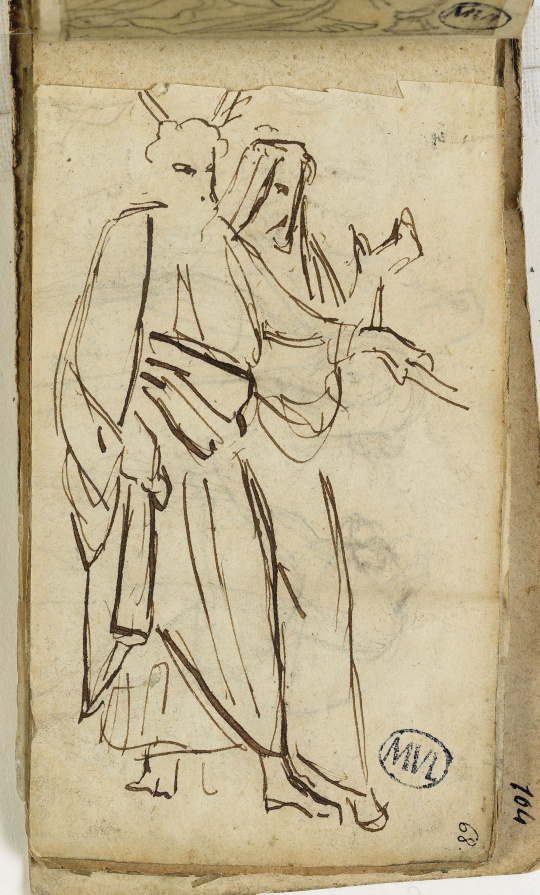 MVL
MVL
104
68.